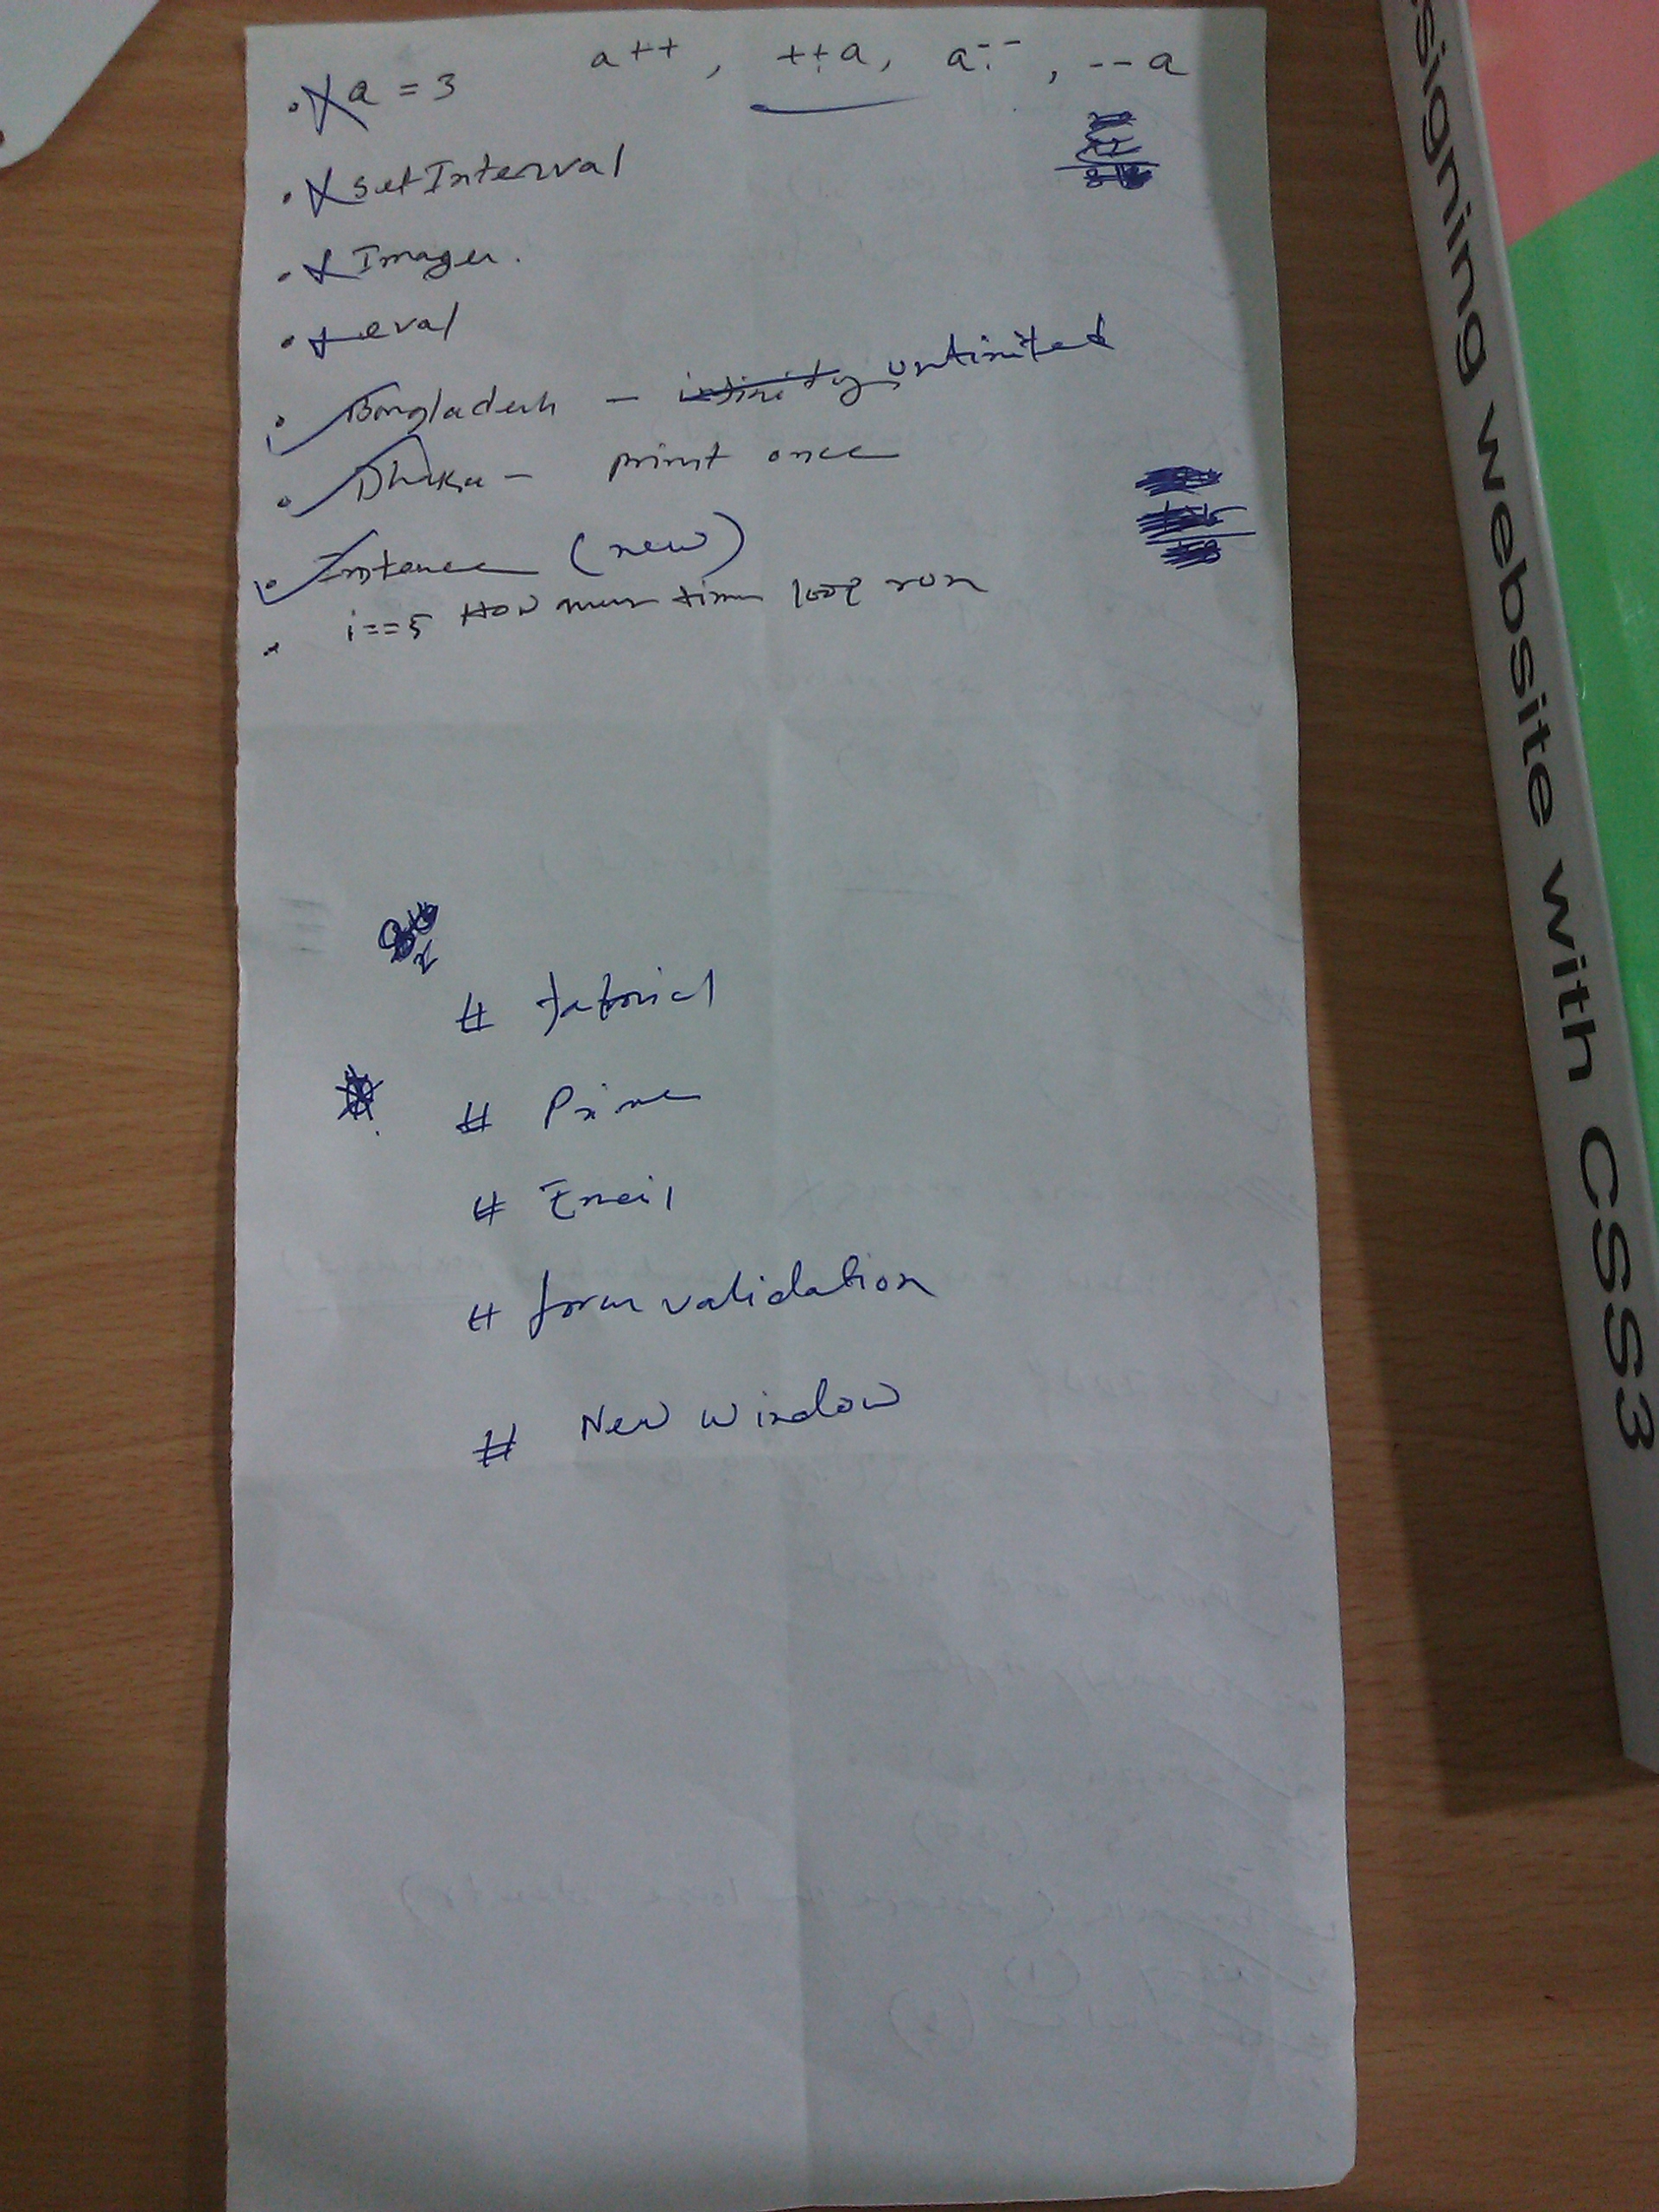 a = 3 a++ , ++a, a-- , --a
setInterval
Images.
eval
Bangladesh - infinity unlimited
Dhaka - print once
Instance (new)
i==5 How many time loop run
# Fatorial
# Prime
# Email
# form validation
# New window
signing website with CSS3